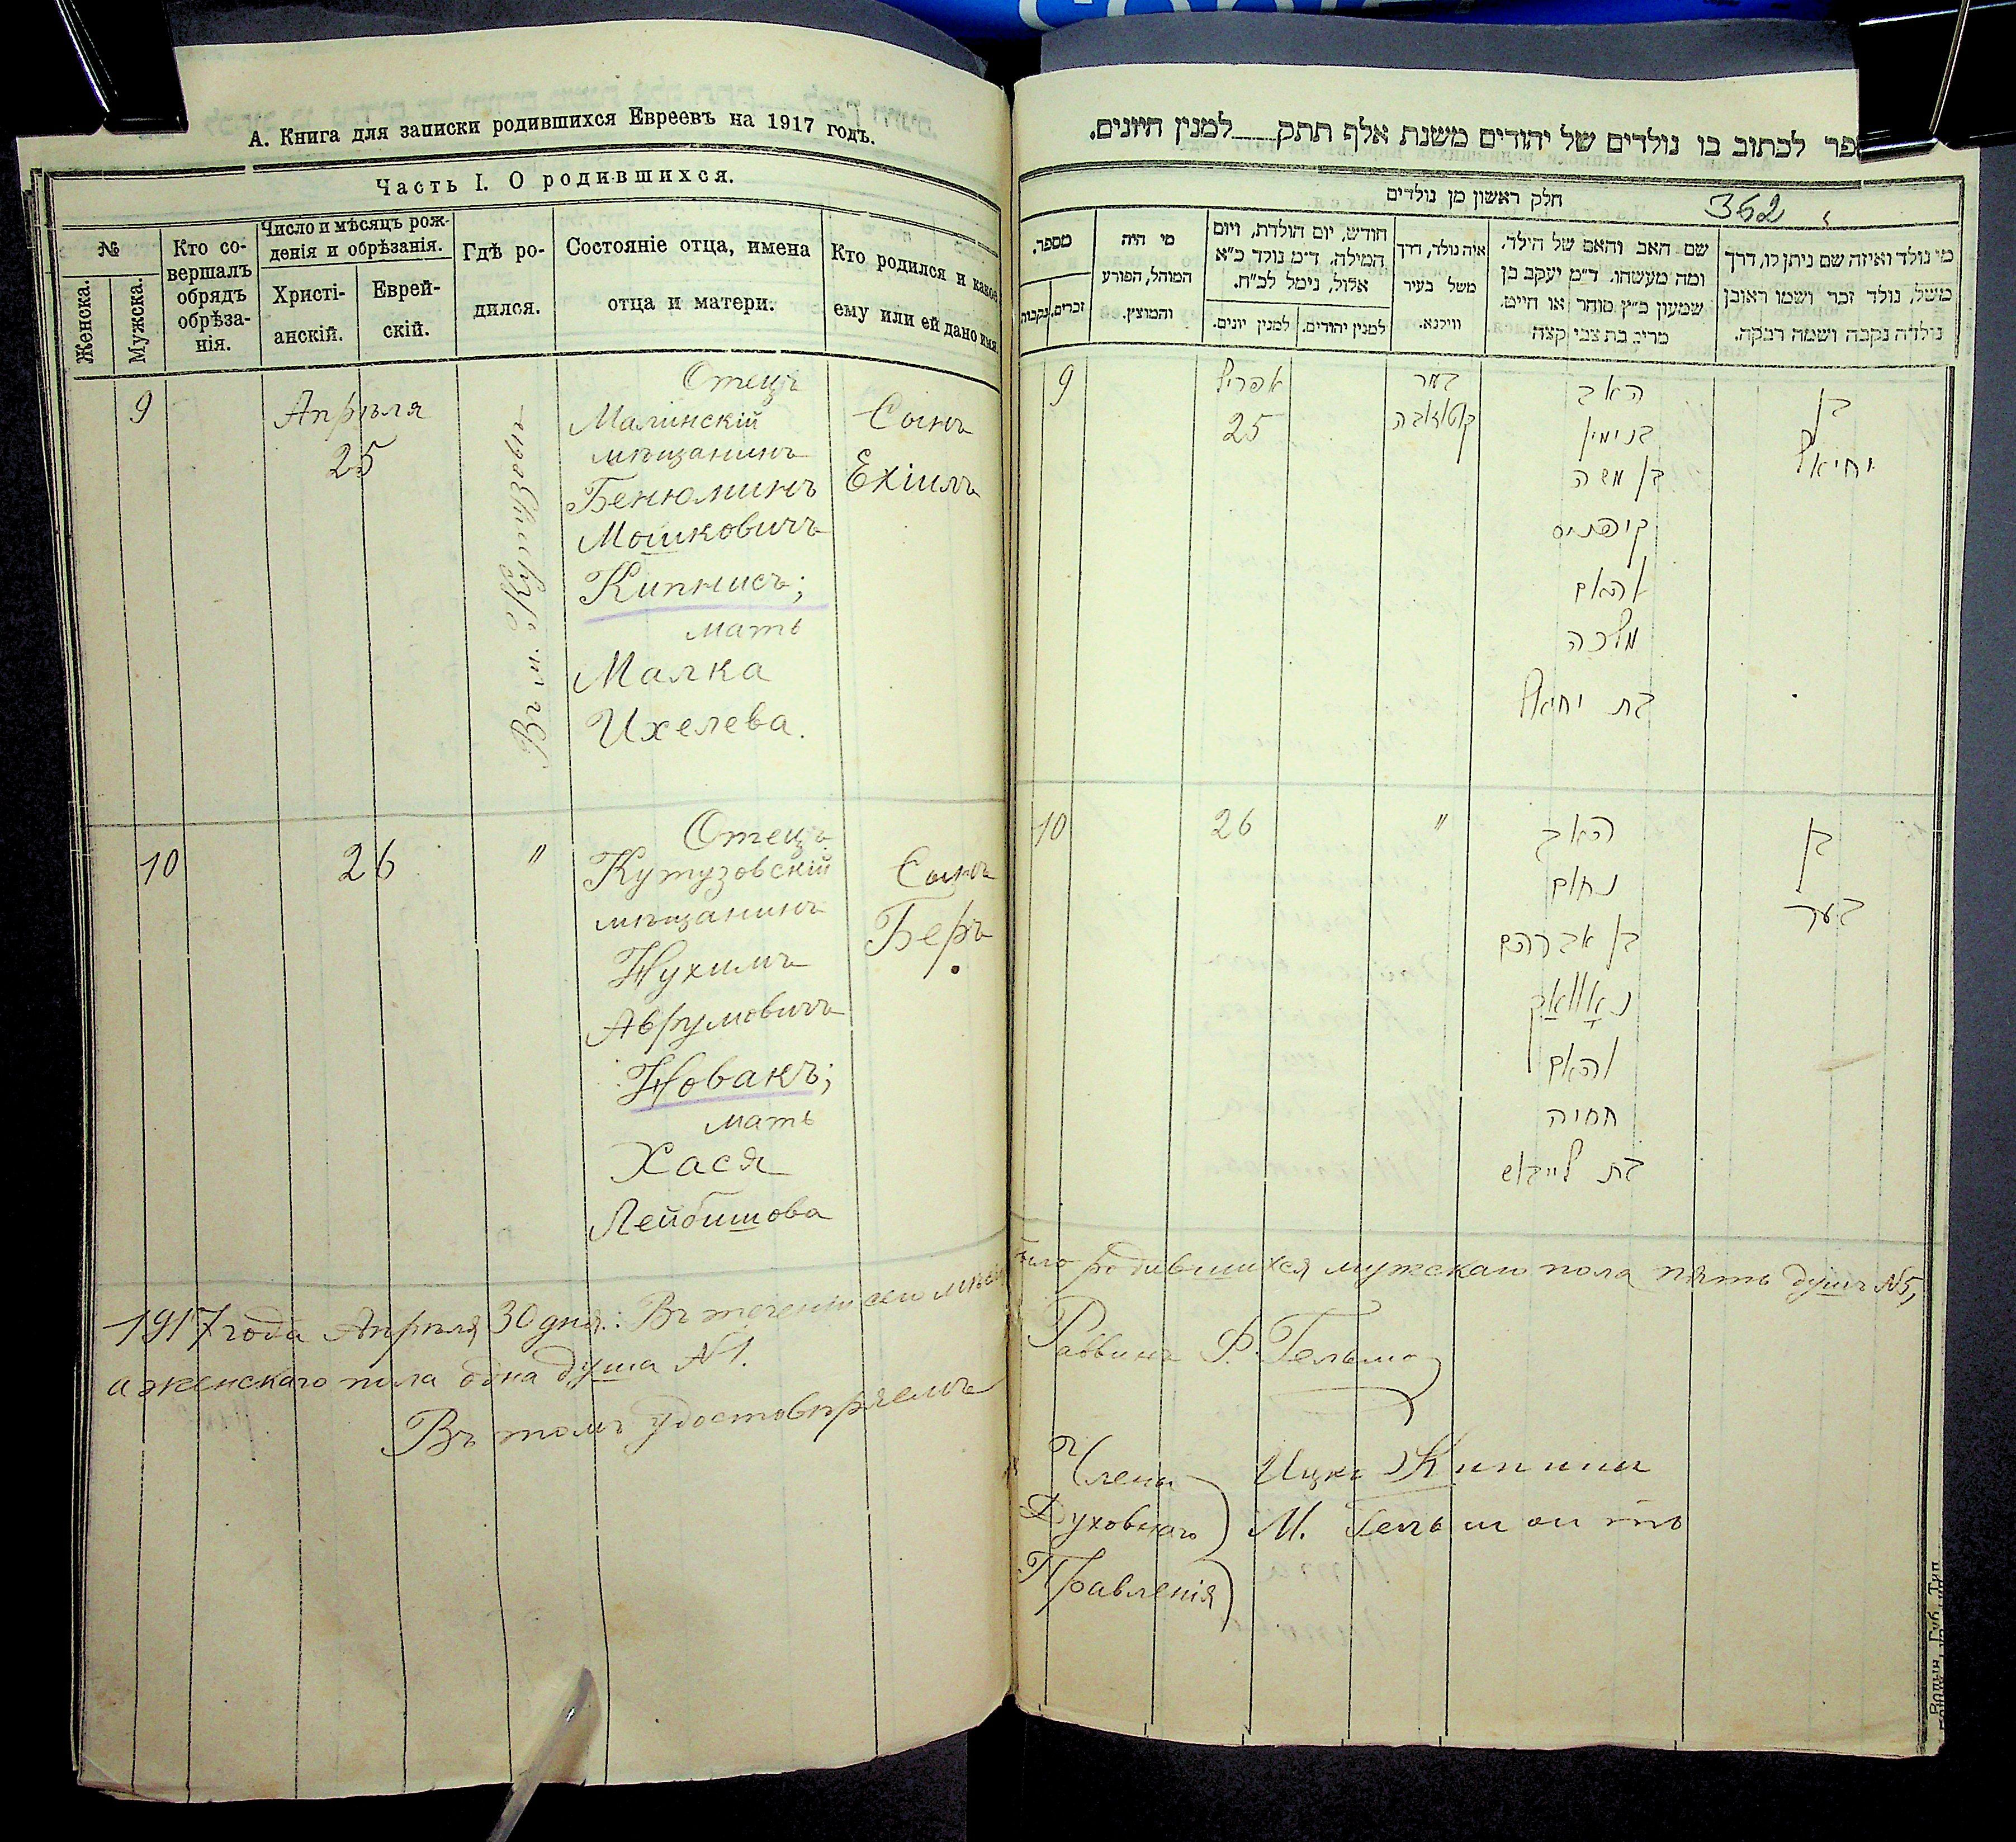 А. Книга для записки родившихся Евреевъ на 1917 годъ.
Часть I. О родившихся.
№
Женска.
Мужска.
Кто со-
вершалъ
обрядъ
обрѣза-
нія.
Число и мѣсяцъ рож-
денія и обрѣзанія.
Христі-
анскій.
Еврей-
скій.
Гдѣ ро-
дился.
Состояніе отца, имена
отца и матери.
Кто родился и какое
ему или ей дано имя.
9
Апрѣля
25
Отецъ
Малинскій
мѣщанинъ
Бенюминъ
Мошковичъ
Кипнисъ;
мать
Малка
Ихелева.
Сынъ
Ехіилъ
10
26
"
Отецъ
Кутузовскій
мѣщанинъ
Нухимъ
Аврумовичъ
Новакъ;
мать
Хася
Лейбишова
Сынъ
Беръ
1917 года Апрѣля 30 дня: Въ теченіи сего
а женскаго пола одна душа №1.
Въ томъ удостовѣряемъ
פר לכתוב בו נולדים של יהודים משנת אלף תתק למנין היונים.
חלק ראשון מן נולדים
362
מספר.
זכרים.
נקבות
מי היה
המוהל, הפורע
והמוצץ.
חודש, יום הולדת, ויום
המילה, ד״מ נולד כ״א
אלול, נימל לכ״ח.
למנין יונים.
למנין יהודים.
איה נולד, דרך
משל בעיר
ווילנא.
שם האב והאם של הילד.
ומה מעשהו. ד״מ יעקב בן
שמעון כ״ץ סוחר או חייט.
מרים בת צבי קצה
מי נולד ואיזה שם ניתן לו, דרך
משל, נולד זכר ושמו ראובן
נולדה נקבה ושמה רבקה.
9
אפריל
25
האב
בנימין
בן משה
קיפניס
והאם
מלכה
בת יחיאל
בן
יחיאל
10
26
"
האב
נחום
בן אברהם
נאוואק
והאם
חסיה
בת לייבוש
בן
בער
родившихся мужскаго пола пять душъ №5,
Раввинъ
Члены
Духовнаго
Правленія
Ицко Кипнис
М.